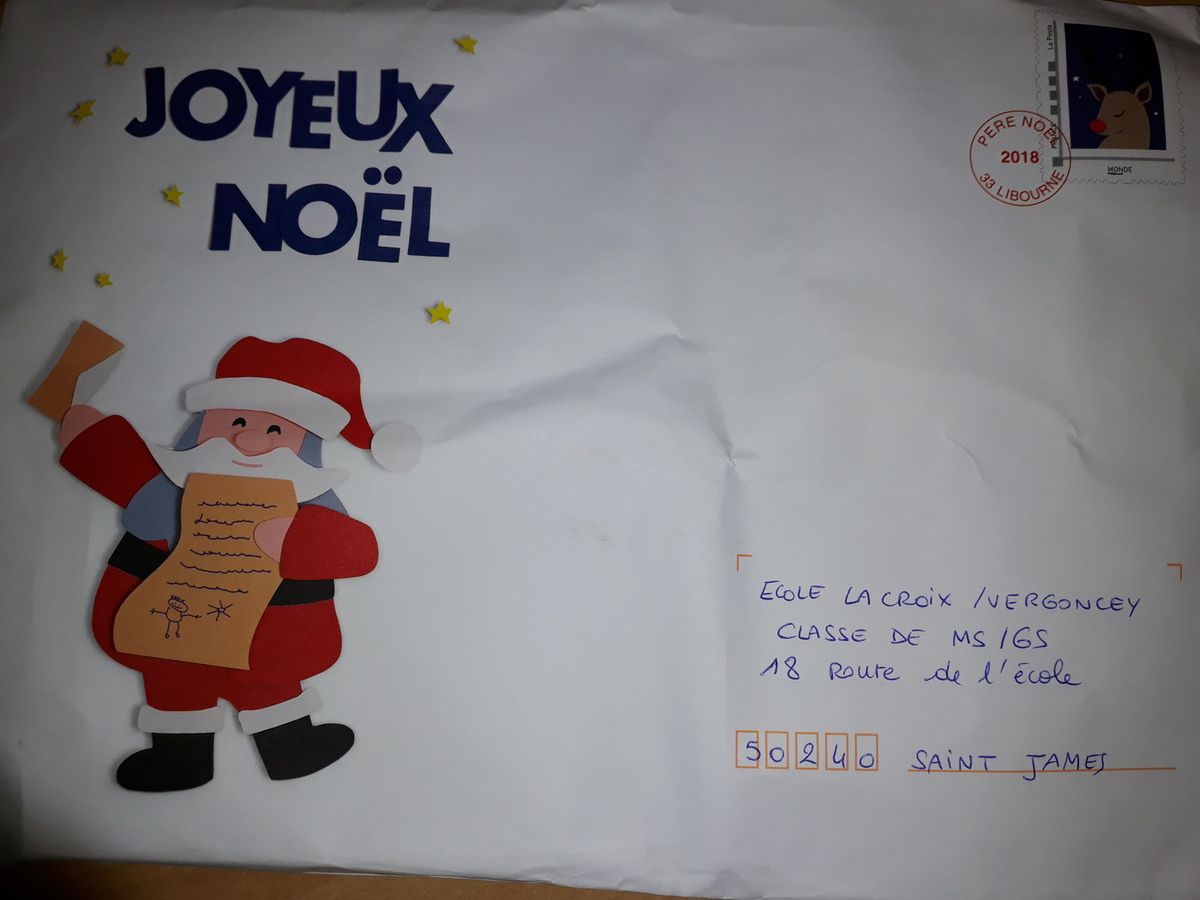 JOYEUX
NOËL
La Poste
MONDE
PERE NOËL
2018
33 LIBOURNE
ECOLE LACROIX /VERGONCEY
CLASSE DE MS/GS
18 Route de l'école
50240 SAINT JAMES